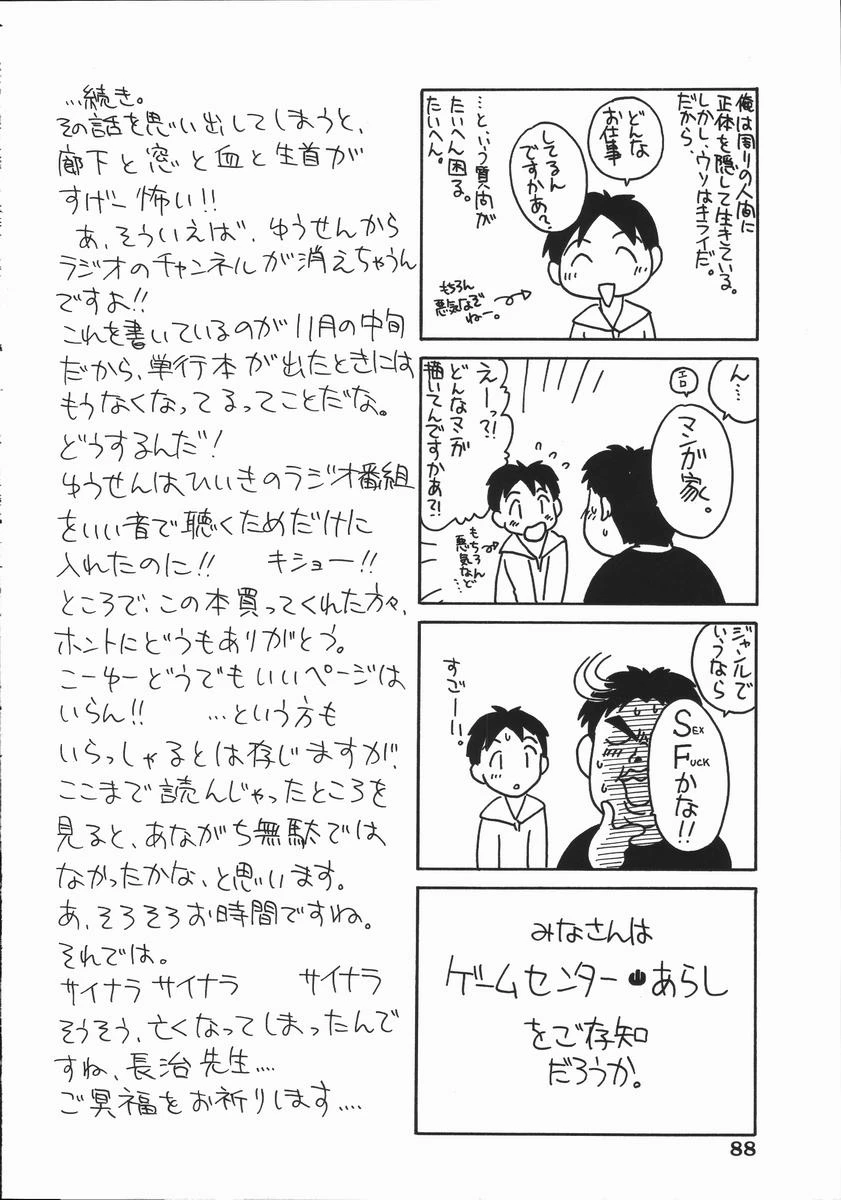 …続き。
その話を思い出してしまうと、
廊下と窓と血と生首が
すげー怖い!!
あ、そういえば、ゆうせんから
ラジオのチャンネルが消えちゃうん
ですよ!!
これを書いているのが11月の中旬
だから、単行本が出たときには
もうなくなってるってことだな。
どうするんだ!
ゆうせんはひいきのラジオ番組
をいい音で聴くためだけに
入れたのに!! キショー!!
ところで、この本買ってくれた方々、
ホントにどうもありがとう。
こーゆーどうでもいいページは
いらん!! …という方も
いらっしゃるとは存じますが、
ここまで読んじゃったところを
見ると、あながち無駄では
なかったかな、と思います。
あ、そろそろお時間ですね。
それでは。
サイナラ サイナラ サイナラ
そうそう、亡くなってしまったんで
すね、長治先生….
ご冥福をお祈りします….
俺は周りの人間に
正体を隠して生きている。
しかし、ウソはキライだ。
だから、
どんな
お仕事
してるん
ですかあ?
…という質問が
たいへん困る。
たいへん。
もちろん
悪気なぞ
ねー。
ん…
エロ
マンガ家。
えーっ?!
どんなマンガ
描いてんですかあ?!
もちろん
悪気など
…
ジャンルで
いうなら
SEX
FUCK
かな!!
すごーい。
みなさんは
ゲームセンターあらし
をご存知
だろうか。
88